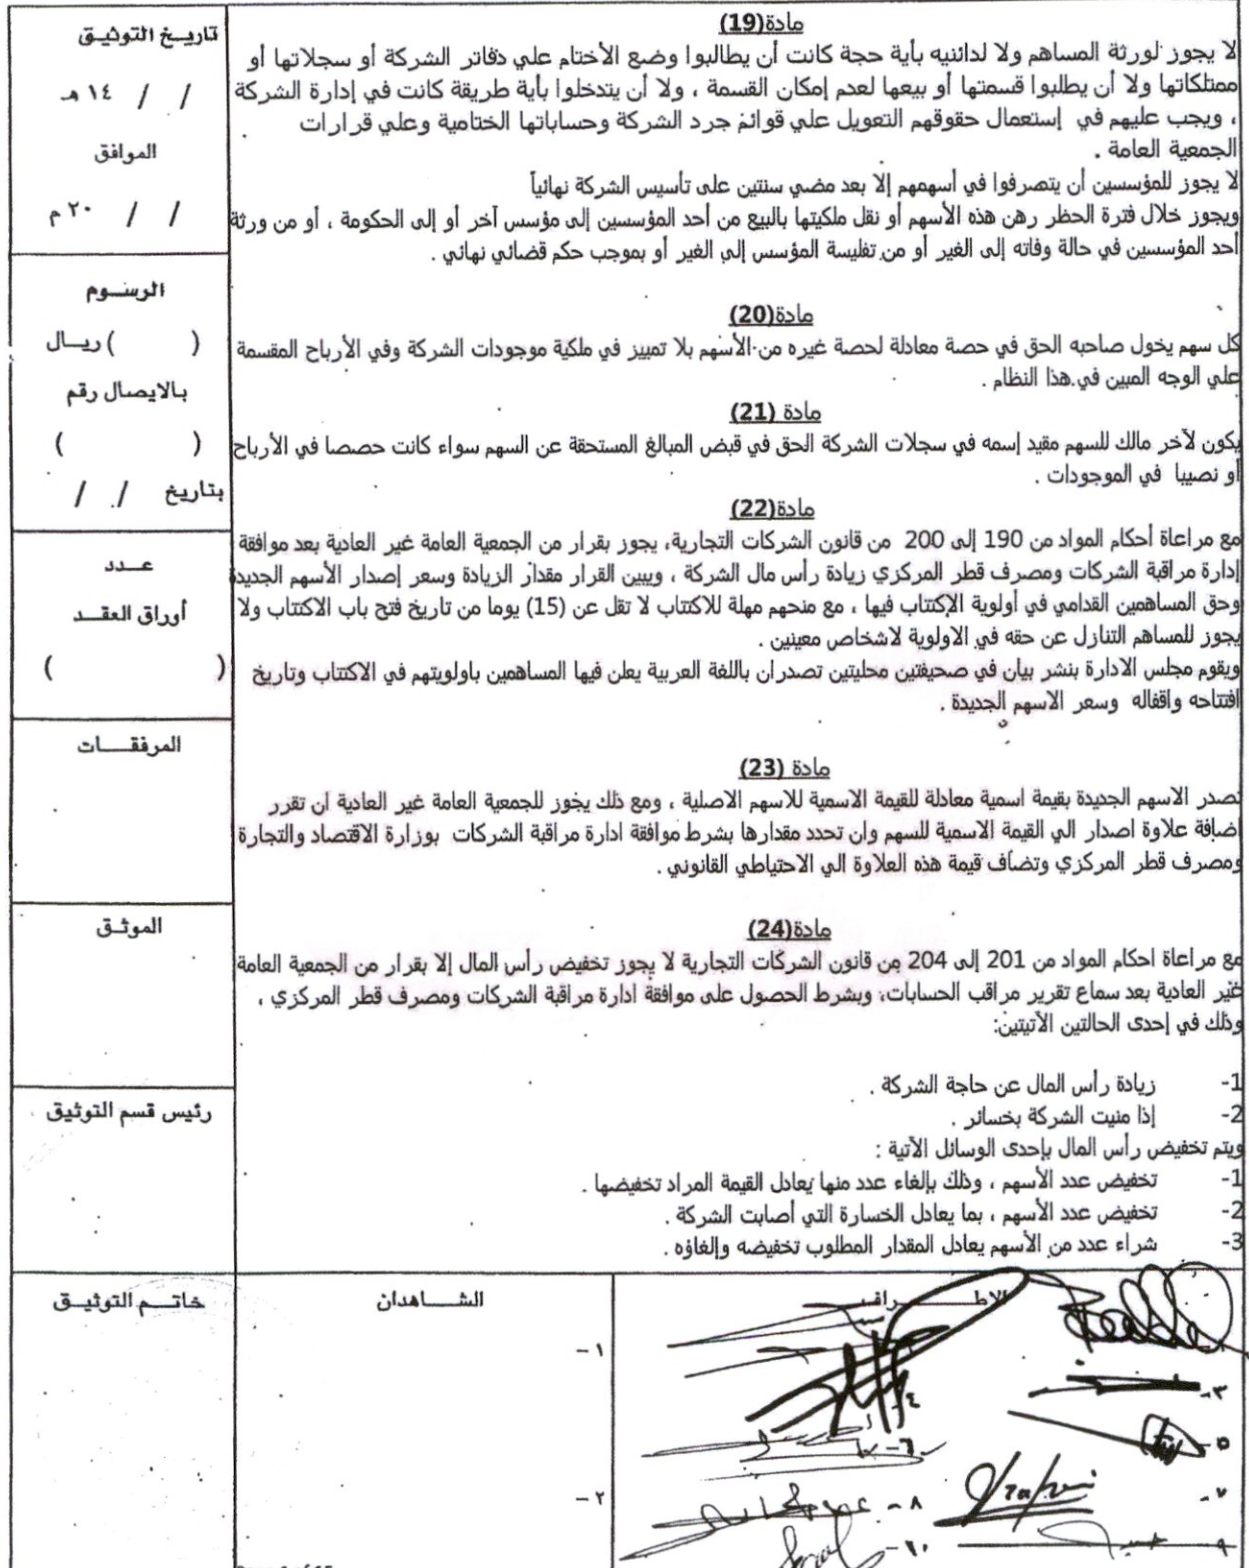 مادة(19)
لا يجوز لورثة المساهم ولا لدائنيه بأية حجة كانت أن يطالبوا وضع الأختام علي دفاتر الشركة أو سجلاتها أو
ممتلكاتها ولا أن يطلبوا قسمتها أو بيعها لعدم إمكان القسمة ، ولا أن يتدخلوا بأية طريقة كانت في إدارة الشركة
، ويجب عليهم في إستعمال حقوقهم التعويل علي قوائم جرد الشركة وحساباتها الختامية وعلي قرارات
الجمعية العامة .
لا يجوز للمؤسسين أن يتصرفوا في أسهمهم إلا بعد مضي سنتين على تأسيس الشركة نهائياً
ويجوز خلال فترة الحظر رهن هذه الأسهم أو نقل ملكيتها بالبيع من أحد المؤسسين إلى مؤسس آخر أو إلى الحكومة ، أو من ورثة
أحد المؤسسين في حالة وفاته إلى الغير أو من تفليسة المؤسس إلى الغير أو بموجب حكم قضائي نهائي .
مادة(20)
كل سهم يخول صاحبه الحق في حصة معادلة لحصة غيره من الأسهم بلا تمييز في ملكية موجودات الشركة وفي الأرباح المقسمة
علي الوجه المبين في هذا النظام .
مادة (21)
يكون لآخر مالك للسهم مقيد إسمه في سجلات الشركة الحق في قبض المبالغ المستحقة عن السهم سواء كانت حصصا في الأرباح
أو نصيبا في الموجودات .
مادة(22)
مع مراعاة أحكام المواد من 190 إلى 200 من قانون الشركات التجارية، يجوز بقرار من الجمعية العامة غير العادية بعد موافقة
إدارة مراقبة الشركات ومصرف قطر المركزي زيادة رأس مال الشركة ، ويبين القرار مقدار الزيادة وسعر إصدار الأسهم الجديدة
وحق المساهمين القدامي في أولوية الإكتتاب فيها ، مع منحهم مهلة للاكتتاب لا تقل عن (15) يوما من تاريخ فتح باب الاكتتاب ولا
يجوز للمساهم التنازل عن حقه في الاولوية لاشخاص معينين .
ويقوم مجلس الادارة بنشر بيان في صحيفتين محليتين تصدران باللغة العربية يعلن فيها المساهمين باولويتهم في الاكتتاب وتاريخ
افتتاحه واقفاله وسعر الاسهم الجديدة .
مادة (23)
تصدر الاسهم الجديدة بقيمة اسمية معادلة للقيمة الاسمية للاسهم الاصلية ، ومع ذلك يجوز للجمعية العامة غير العادية ان تقرر
اضافة علاوة اصدار الي القيمة الاسمية للسهم وان تحدد مقدارها بشرط موافقة ادارة مراقبة الشركات بوزارة الاقتصاد والتجارة
ومصرف قطر المركزي وتضاف قيمة هذه العلاوة الي الاحتياطي القانوني .
مادة(24)
مع مراعاة احكام المواد من 201 إلى 204 من قانون الشركات التجارية لا يجوز تخفيض رأس المال إلا بقرار من الجمعية العامة
غير العادية بعد سماع تقرير مراقب الحسابات، وبشرط الحصول على موافقة ادارة مراقبة الشركات ومصرف قطر المركزي ،
وذلك في إحدى الحالتين الآتيتين:
1- زيادة رأس المال عن حاجة الشركة .
2- إذا منيت الشركة بخسائر .
ويتم تخفيض رأس المال بإحدى الوسائل الآتية :
1- تخفيض عدد الأسهم ، وذلك بإلغاء عدد منها يعادل القيمة المراد تخفيضها .
2- تخفيض عدد الأسهم ، بما يعادل الخسارة التي أصابت الشركة .
3- شراء عدد من الأسهم يعادل المقدار المطلوب تخفيضه وإلغاؤه .
تاريخ التوثيق
/ / ١٤ هـ
الموافق
/ / ٢٠ م
الرسوم
( ) ريال
بالايصال رقم
( )
بتاريخ / /
عدد
أوراق العقد
( )
المرفقات
الموثق
رئيس قسم التوثيق
الاطراف
٣-
٤-
٥-
٦-
٧-
٨-
٩-
١٠-
الشاهدان
١-
٢-
خاتم التوثيق